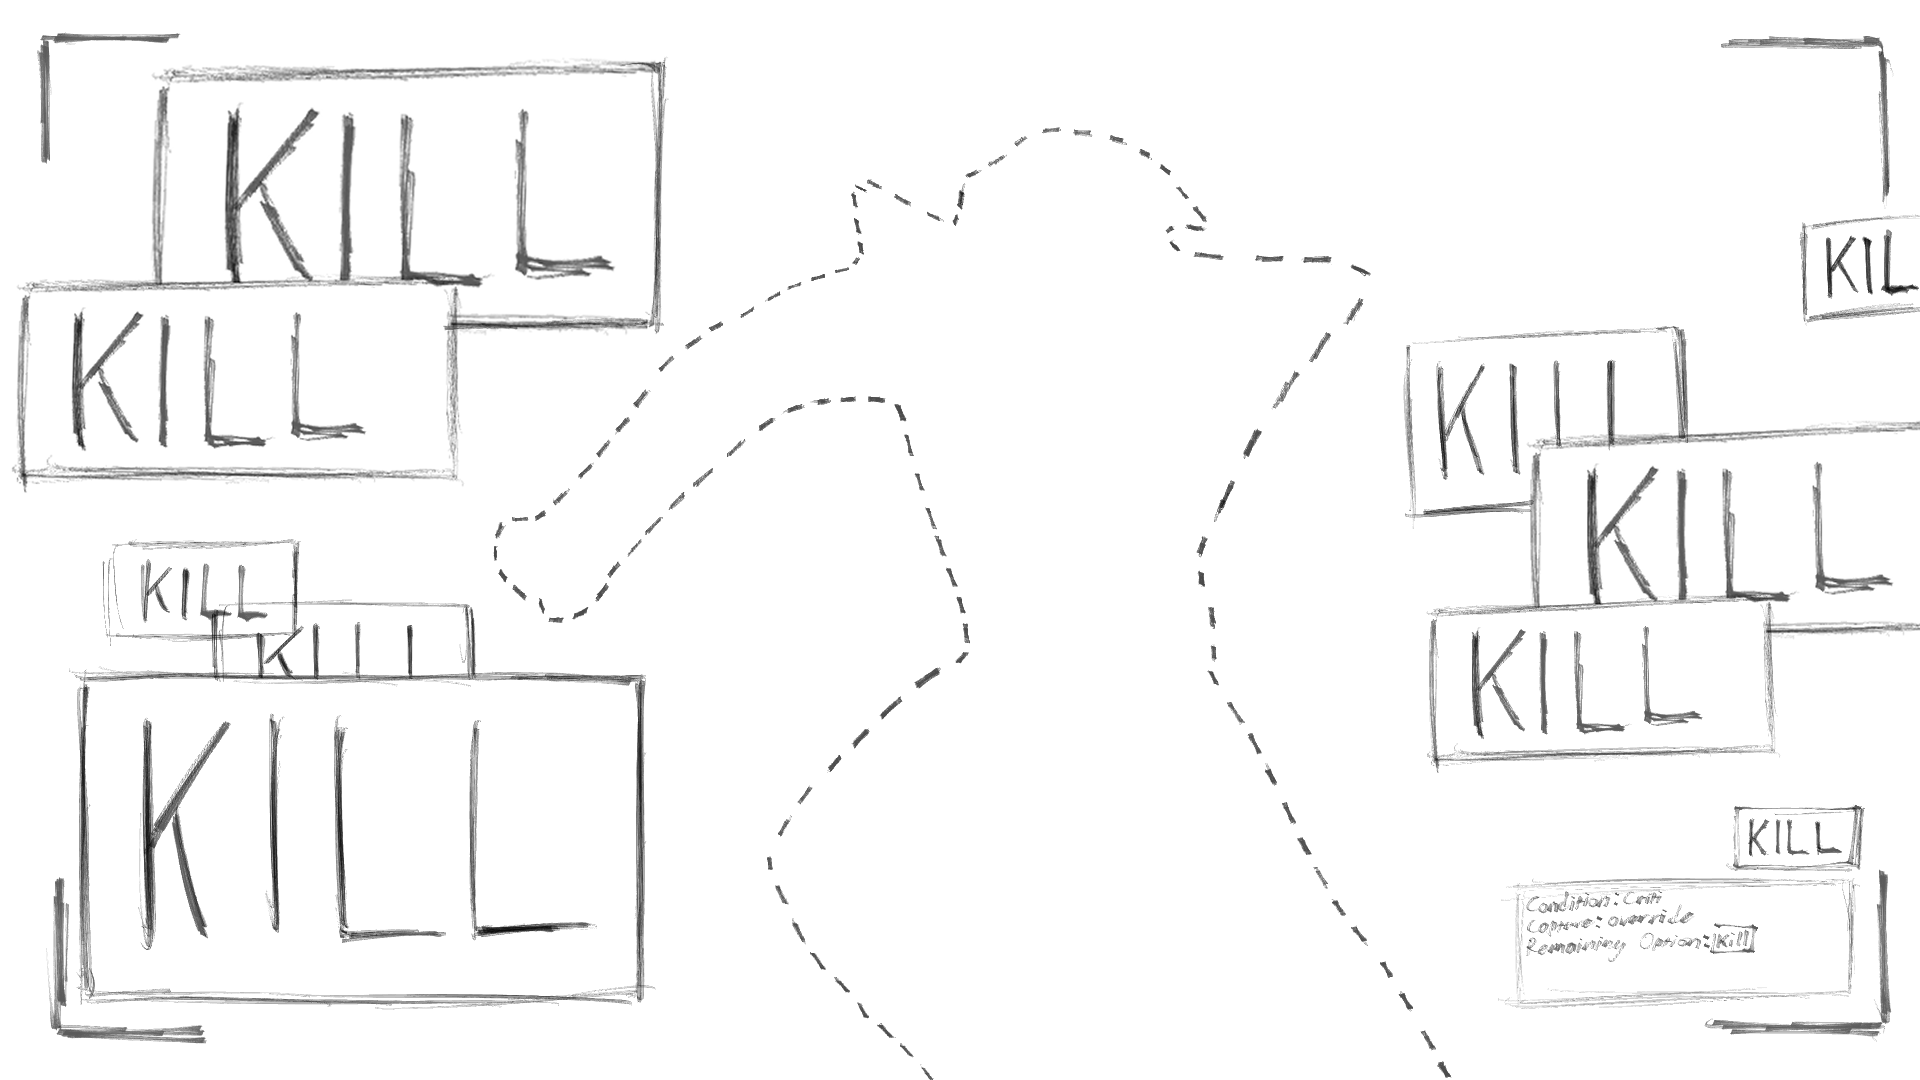 KILL
KILL
KILL
KILL
KILL
KIL
KILL
KILL
KILL
KILL
Condition: Criti
Capture: override
Remaining Option: Kill